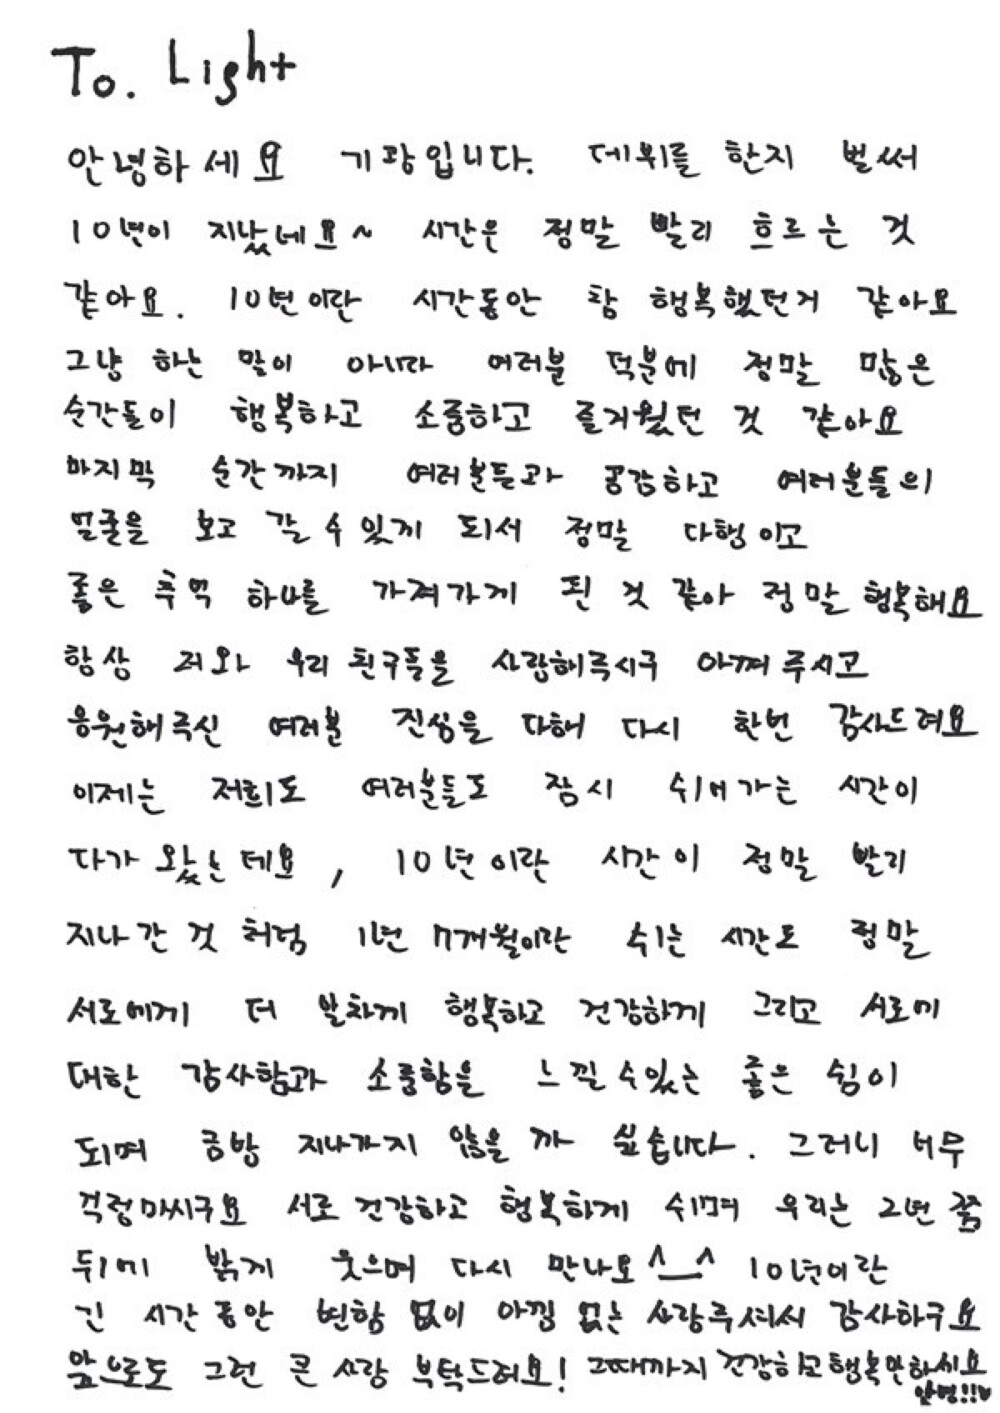 To. Light
안녕하세요 기광입니다. 데뷔를 한지 벌써
10년이 지났네요~ 시간은 정말 빨리 흐르는 것
같아요. 10년이란 시간동안 참 행복했던거 같아요
그냥 하는 말이 아니라 여러분 덕분에 정말 많은
순간들이 행복하고 소중하고 즐거웠던 것 같아요
마지막 순간까지 여러분들과 공감하고 여러분들의
얼굴을 보고 갈 수 있게 되서 정말 다행이고
좋은 추억 하나를 가져가게 된 것 같아 정말 행복해요
항상 저와 우리 친구들을 사랑해주시구 아껴주시고
응원해주신 여러분 진심을 다해 다시 한번 감사드려요
이제는 저희도 여러분들도 잠시 쉬어가는 시간이
다가왔는데요, 10년이란 시간이 정말 빨리
지나간 것 처럼 1년 7개월이란 쉬는 시간도 정말
서로에게 더 발차게 행복하고 건강하게 그리고 서로에
대한 감사함과 소중함을 느낄 수있는 좋은 쉼이
되며 금방 지나가지 않을 까 싶습니다. 그러니 너무
걱정마시구요 서로 건강하고 행복하게 쉬며 우리는 2년 쯤
뒤에 밝게 웃으며 다시 만나요^__^ 10년이란
긴 시간동안 변함 없이 아낌 없는 사랑주셔서 감사하구요
앞으로도 그런 큰 사랑 부탁드려요! 그때까지 건강하고행복만하세요
안녕!!♥